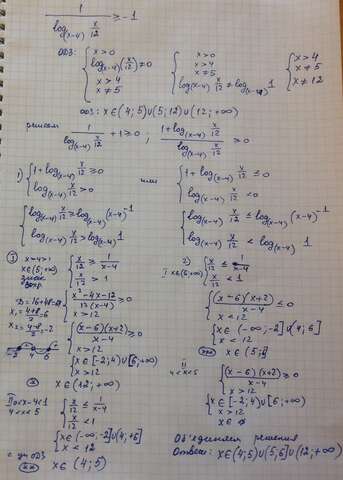 1/log_(x-4) x/12 ≥ -1
ОДЗ: { x>0
log_(x-4)(x/12) ≠ 0
x>4
x≠5
{ x>0
x>4
x≠5
log_(x-4) x/12 ≠ log_(x-4) 1
{ x>4
x≠5
x≠12
ОДЗ: x∈(4;5)∪(5;12)∪(12;+∞)
решаем 1/log_(x-4) x/12 + 1 ≥ 0 ; (1+log_(x-4) x/12)/log_(x-4) x/12 ≥ 0
1) { 1+log_(x-4) x/12 ≥ 0
log_(x-4) x/12 > 0
или
{ 1+log_(x-4) x/12 ≤ 0
log_(x-4) x/12 < 0
{ log_(x-4) x/12 ≥ log_(x-4) (x-4)^-1
log_(x-4) x/12 > log_(x-4) 1
{ log_(x-4) x/12 ≤ log_(x-4) (x-4)^-1
log_(x-4) x/12 < log_(x-4) 1
I x-4>1
x∈(5;+∞)
{ x/12 ≥ 1/(x-4)
x/12 > 1
D=16+48=
x₁=(4+8)/2=6
x₂=(4-8)/2=-2
{ (x²-4x-12)/(12(x-4)) ≥ 0
x>12
{ (x-6)(x+2)/(x-4) ≥ 0
x>12
{ x∈[-2;4)∪[6;+∞)
x>12
x∈(12;+∞)
II 0<x-4<1
4<x<5
{ x/12 ≤ 1/(x-4)
x/12 < 1
{ x∈(-∞;-2]∪(4;+6]
x<12
с уч ОДЗ
x∈(4;5)
2)
I x∈(5;+∞)
{ x/12 ≤ 1/(x-4)
x/12 < 1
{ (x-6)(x+2)/(x-4) ≤ 0
x<12
{ x∈(-∞;-2]∪(4;6]
x<12
x∈(5;6]
II
4<x<5
{ (x-6)(x+2)/(x-4) ≥ 0
x>12
{ x∈[-2;4)∪[6;+∞)
x>12
x∈∅
Объединяем решения
Ответ: x∈(4;5)∪(5;6]∪(12;+∞)